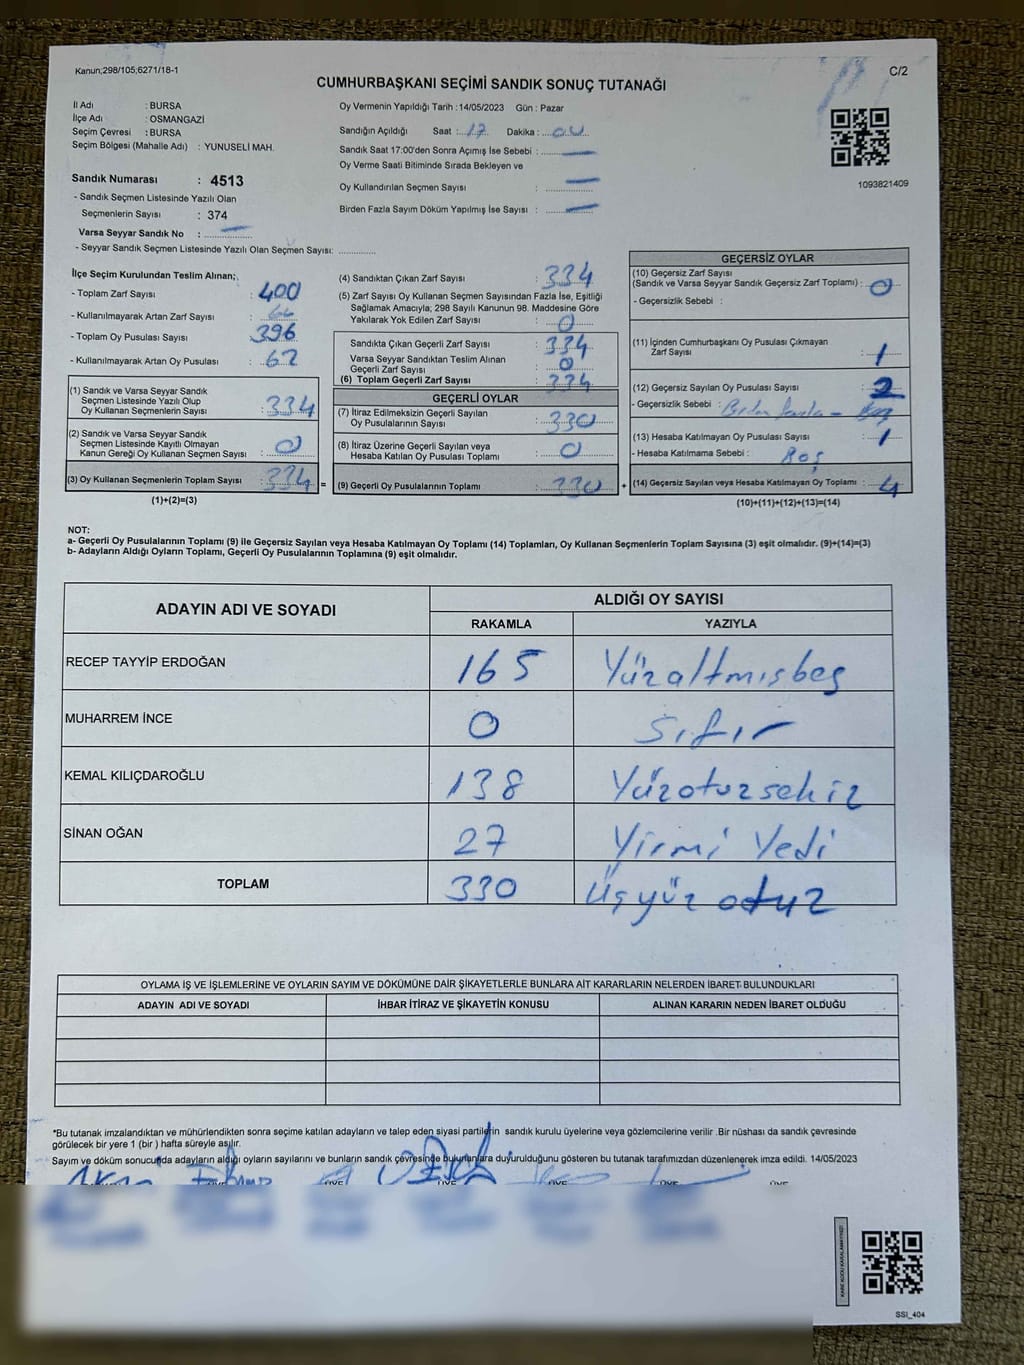 Kanun;298/105;6271/18-1
C/2
CUMHURBAŞKANI SEÇİMİ SANDIK SONUÇ TUTANAĞI
İl Adı : BURSA
İlçe Adı : OSMANGAZİ
Seçim Çevresi : BURSA
Seçim Bölgesi (Mahalle Adı) : YUNUSELİ MAH.
Sandık Numarası : 4513
- Sandık Seçmen Listesinde Yazılı Olan
Seçmenlerin Sayısı : 374
Varsa Seyyar Sandık No :
- Seyyar Sandık Seçmen Listesinde Yazılı Olan Seçmen Sayısı:
Oy Vermenin Yapıldığı Tarih :14/05/2023 Gün : Pazar
Sandığın Açıldığı Saat : 17 Dakika : 00
Sandık Saat 17:00'den Sonra Açımış İse Sebebi :
Oy Verme Saati Bitiminde Sırada Bekleyen ve
Oy Kullandırılan Seçmen Sayısı :
Birden Fazla Sayım Döküm Yapılmış İse Sayısı :
1093821409
İlçe Seçim Kurulundan Teslim Alınan;
- Toplam Zarf Sayısı : 400
- Kullanılmayarak Artan Zarf Sayısı : 66
- Toplam Oy Pusulası Sayısı : 396
- Kullanılmayarak Artan Oy Pusulası : 62
(1) Sandık ve Varsa Seyyar Sandık
Seçmen Listesinde Yazılı Olup
Oy Kullanan Seçmenlerin Sayısı : 334
(2) Sandık ve Varsa Seyyar Sandık
Seçmen Listesinde Kayıtlı Olmayan
Kanun Gereği Oy Kullanan Seçmen Sayısı : 0
(3) Oy Kullanan Seçmenlerin Toplam Sayısı : 334 =
(1)+(2)=(3)
(4) Sandıktan Çıkan Zarf Sayısı : 334
(5) Zarf Sayısı Oy Kullanan Seçmen Sayısından Fazla İse, Eşitliği
Sağlamak Amacıyla; 298 Sayılı Kanunun 98. Maddesine Göre
Yakılarak Yok Edilen Zarf Sayısı : 0
Sandıkta Çıkan Geçerli Zarf Sayısı : 334
Varsa Seyyar Sandıktan Teslim Alınan
Geçerli Zarf Sayısı : 0
(6) Toplam Geçerli Zarf Sayısı : 334
GEÇERLİ OYLAR
(7) İtiraz Edilmeksizin Geçerli Sayılan
Oy Pusulalarının Sayısı : 330
(8) İtiraz Üzerine Geçerli Sayılan veya
Hesaba Katılan Oy Pusulası Toplamı : 0
(9) Geçerli Oy Pusulalarının Toplamı : 330 +
GEÇERSİZ OYLAR
(10) Geçersiz Zarf Sayısı
(Sandık ve Varsa Seyyar Sandık Geçersiz Zarf Toplamı) : 0
- Geçersizlik Sebebi :
(11) İçinden Cumhurbaşkanı Oy Pusulası Çıkmayan
Zarf Sayısı : 1
(12) Geçersiz Sayılan Oy Pusulası Sayısı : 2
- Geçersizlik Sebebi :
(13) Hesaba Katılmayan Oy Pusulası Sayısı : 1
- Hesaba Katılmama Sebebi : Boş
(14) Geçersiz Sayılan veya Hesaba Katılmayan Oy Toplamı : 4
(10)+(11)+(12)+(13)=(14)
NOT:
a- Geçerli Oy Pusulalarının Toplamı (9) ile Geçersiz Sayılan veya Hesaba Katılmayan Oy Toplamı (14) Toplamları, Oy Kullanan Seçmenlerin Toplam Sayısına (3) eşit olmalıdır. (9)+(14)=(3)
b- Adayların Aldığı Oyların Toplamı, Geçerli Oy Pusulalarının Toplamına (9) eşit olmalıdır.
ADAYIN ADI VE SOYADI
ALDIĞI OY SAYISI
RAKAMLA YAZIYLA
RECEP TAYYİP ERDOĞAN 165 Yüzaltmışbeş
MUHARREM İNCE 0 Sıfır
KEMAL KILIÇDAROĞLU 138 Yüzotuzsekiz
SİNAN OĞAN 27 Yirmi Yedi
TOPLAM 330 Üçyüz otuz
OYLAMA İŞ VE İŞLEMLERİNE VE OYLARIN SAYIM VE DÖKÜMÜNE DAİR ŞİKAYETLERLE BUNLARA AİT KARARLARIN NELERDEN İBARET BULUNDUKLARI
ADAYIN ADI VE SOYADI İHBAR İTİRAZ VE ŞİKAYETİN KONUSU ALINAN KARARIN NEDEN İBARET OLDUĞU
*Bu tutanak imzalandıktan ve mühürlendikten sonra seçime katılan adayların ve talep eden siyasi partilerin sandık kurulu üyelerine veya gözlemcilerine verilir .Bir nüshası da sandık çevresinde
görülecek bir yere 1 (bir ) hafta süreyle asılır.
Sayım ve döküm sonucunda adayların aldığı oyların sayılarını ve bunların sandık çevresinde bulunanlara duyurulduğunu gösteren bu tutanak tarafımızdan düzenlenerek imza edildi. 14/05/2023
SSI_404